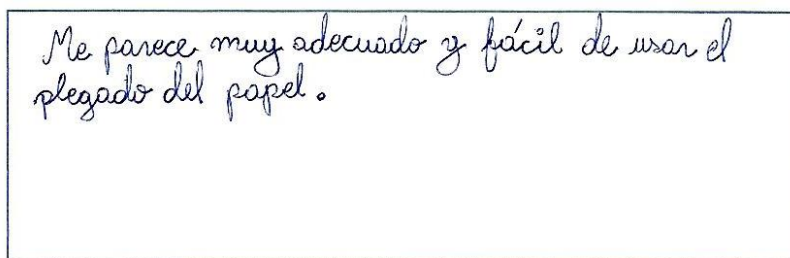 Me parece muy adecuado y fácil de usar el
plegado del papel.